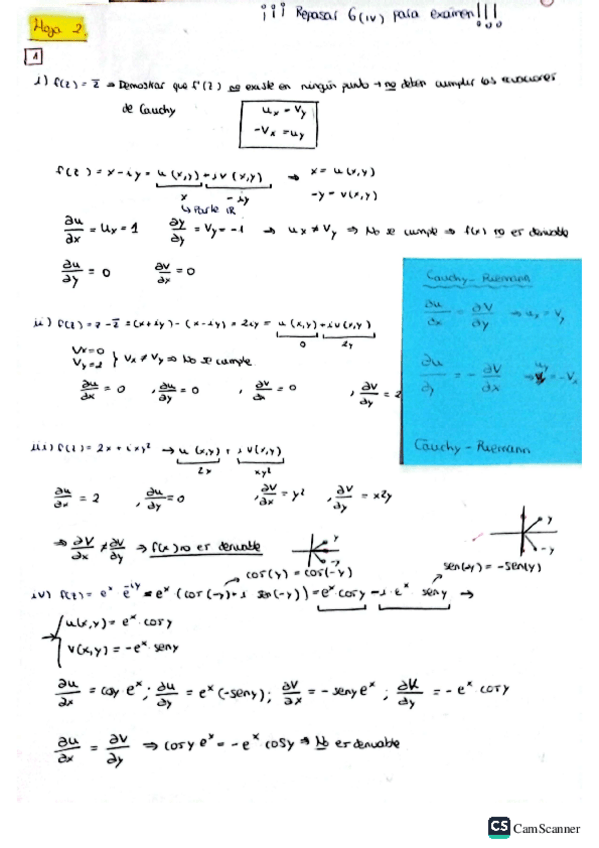 ¡¡¡ Repasar 6(iv) para examen!!!
Hoja 2
1
i) f(z) = z̅ ⇒ Demostrar que f'(z) no existe en ningún punto → no deben cumplir las ecuaciones
de Cauchy
ux = Vy
-Vx = uy
f(z) = x - iy = u(x,y) + i v(x,y) → x = u(x,y)
x - iy
-y = v(x,y)
↳ Parte IR
∂u/∂x = ux = 1 ∂y/∂y = Vy = -1 → ux ≠ Vy ⇒ No se cumple ⇒ f(x) no es derivable
∂u/∂y = 0 ∂v/∂x = 0
Cauchy-Riemann
∂u/∂x = ∂V/∂y → ux = Vy
∂u/∂y = - ∂V/∂x → uy = -Vx
Cauchy-Riemann
ii) f(z) = z - z̅ = (x+iy) - (x-iy) = 2iy = u(x,y) + i v(x,y)
0 2y
Vx=0
Vy=2 } Vx ≠ Vy ⇒ No se cumple
∂u/∂x = 0 , ∂u/∂y = 0 , ∂v/∂x = 0 , ∂V/∂y = 2
iii) f(z) = 2x + ixy² → u(x,y) + i v(x,y)
2x xy²
∂u/∂x = 2 , ∂u/∂y = 0 , ∂V/∂x = y² , ∂V/∂y = x2y
⇒ ∂V/∂x ≠ ∂V/∂y ⇒ f(x) no es derivable
y
-y
cos(y) = cos(-y)
sen(-y) = -sen(y)
iv) f(z) = eˣ e⁻ⁱʸ = eˣ (cos(-y) + i sen(-y)) = eˣ cosy - i·eˣ seny →
u(x,y) = eˣ cosy
v(x,y) = -eˣ seny
∂u/∂x = cosy eˣ ; ∂u/∂y = eˣ(-seny) ; ∂V/∂x = -seny eˣ ; ∂V/∂y = -eˣ cosy
∂u/∂x = ∂V/∂y ⇒ cosy eˣ = -eˣ cosy ⇒ No es derivable
CS CamScanner